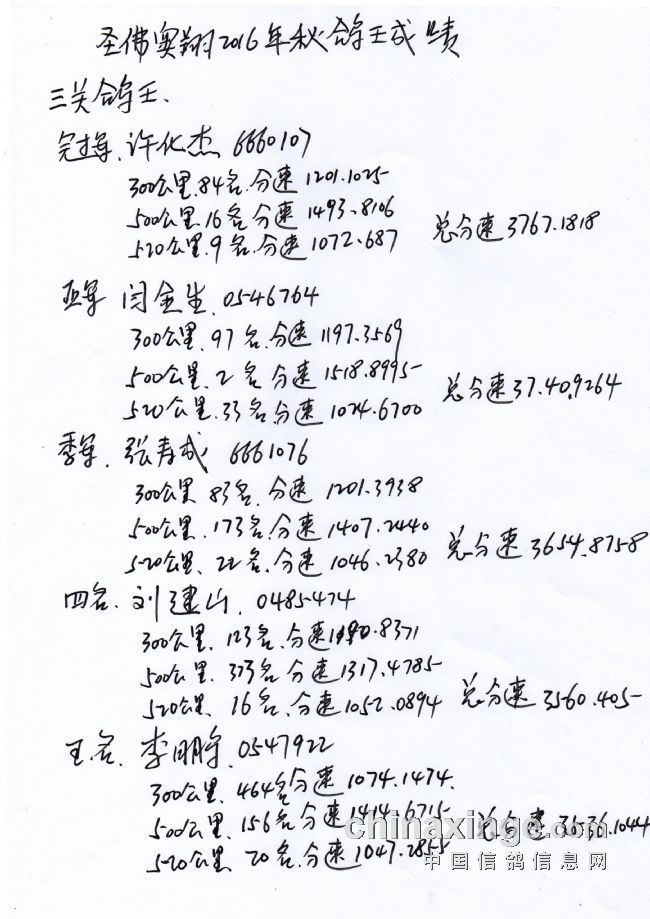 圣佛奥翔2016年秋鸽王成绩
三关鸽王、
冠军、许化杰 6660107
300公里.84名.分速1201.1025
500公里.16名分速1493.8106
520公里.9名.分速1072.687 总分速3767.1818
亚军 闫金生.0546764
300公里.97名.分速1197.3569
500公里.2名.分速1518.8995
520公里.33名.分速1024.6700 总分速37.40.9264
季军、张寿成 6661076
300公里 83名.分速1201.3938
500公里.173名.分速1407.2440
520公里、22名.分速1046.2380 总分速3654.8758
四名.刘建山.0485474
300公里.123名.分速1190.8371
500公里.373名.分速1317.4785
520公里 16名.分速1052.0894 总分速3560.405
五名.李明宇.0547922
300公里.464名分速1074.1474.
500公里.156名分速1414.6715 总分速3536.1044
520公里 20名.分速1047.2855
chinaxinge.com
中国信鸽信息网